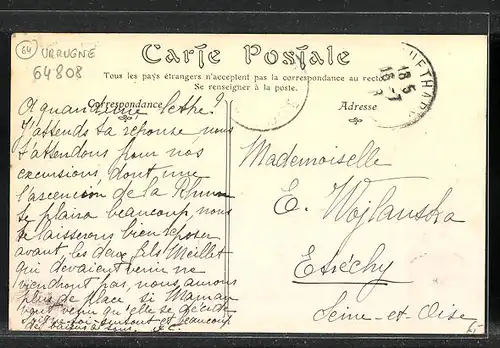 64
URRUGNE
64808
Carte Postale
Tous les pays étrangers n'acceptent pas la correspondance au recto
Se renseigner à la poste.
Correspondance
Adresse
A quand une lettre?
J'attends ta réponse nous
t'attendons pour nos
excursions dont une
l'ascencion de la Rhune
te plaira beaucoup, nous
te laisserons bien reposer
avant les deux fils Meillet
qui devaient venir ne
viendront pas, nous aurons
plus de place si Maman
veut venir qu'elle se décide
soigne-toi surtout et beaucoup
de baisers à tous
Mademoiselle
E. Wojlanska
Etréchy
Seine-et-Oise
18 5
16 - 7